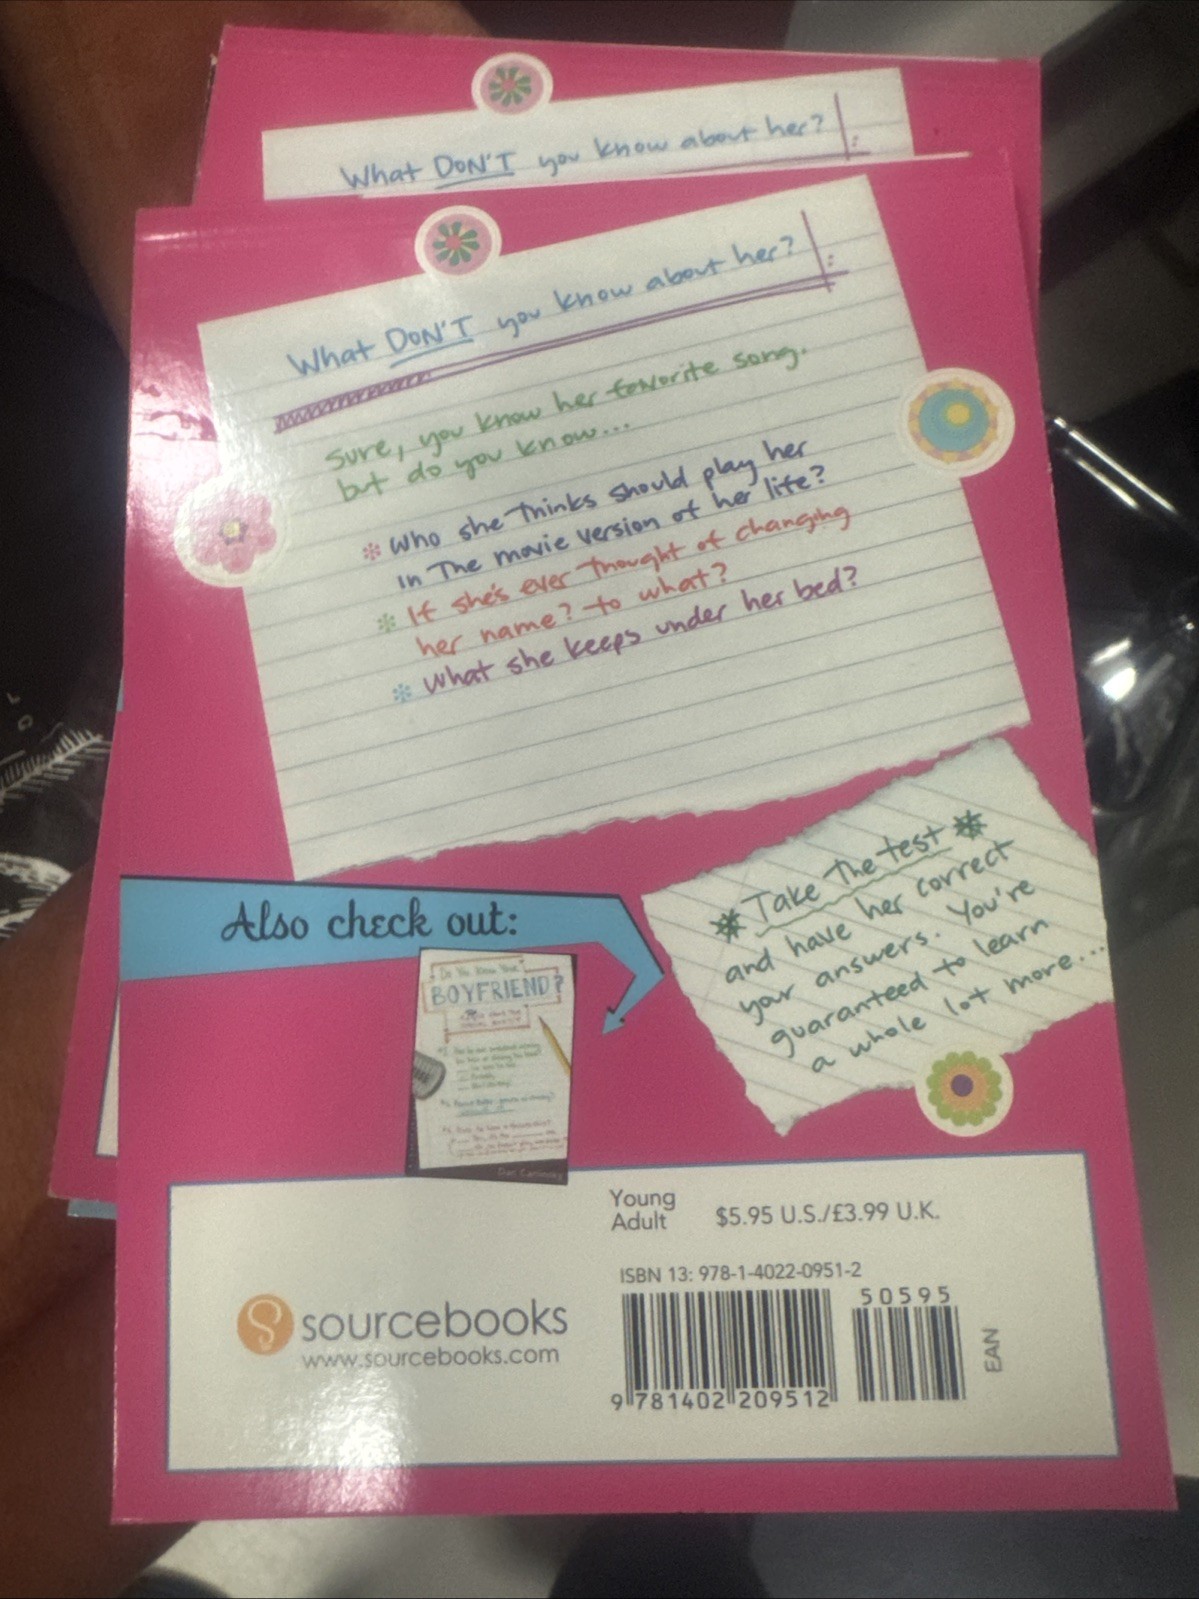 What DON'T you know about her?
What DON'T you know about her?
Sure, you know her favorite song.
but do you know...
* Who she thinks should play her
in the movie version of her life?
* If she's ever thought of changing
her name? to what?
* What she keeps under her bed?
* Take the test *
and have her correct
your answers. You're
guaranteed to learn
a whole lot more...
Also check out:
Do You Know Your
BOYFRIEND?
Dan Carlinsky
Young
Adult
$5.95 U.S./£3.99 U.K.
ISBN 13: 978-1-4022-0951-2
50595
EAN
9 781402 209512
sourcebooks
www.sourcebooks.com